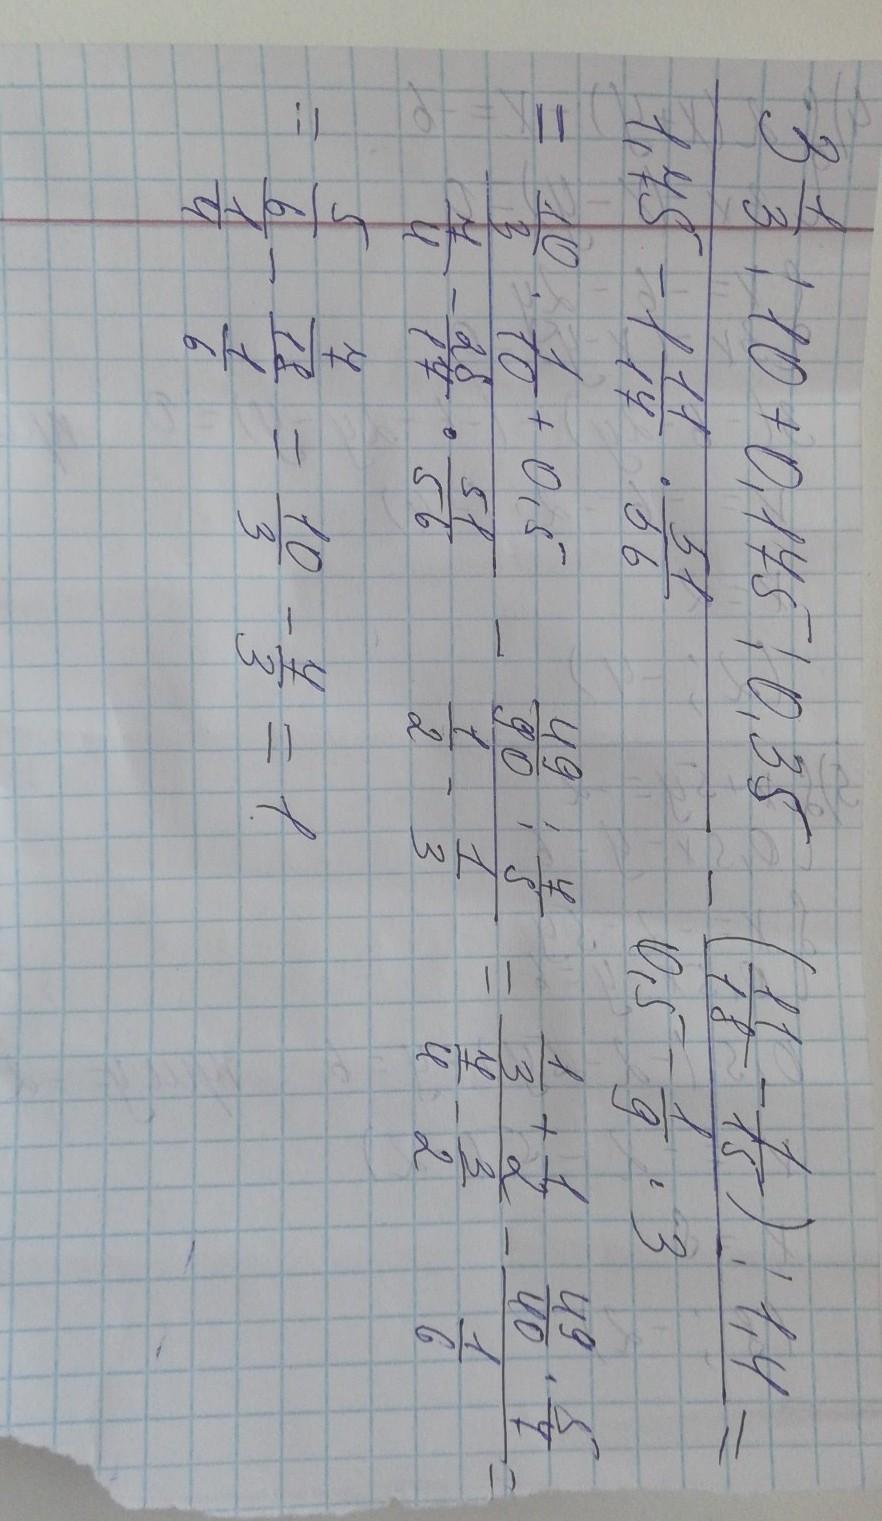 (3 1/3 : 10 + 0,175 : 0,35) / (1,75 - 1 11/17 · 51/56) - ((11/18 - 1/15) : 1,4) / (0,5 - 1/9 · 3) =
= (10/3 · 1/10 + 0,5) / (7/4 - 28/17 · 51/56) - (49/90 : 7/5) / (1/2 - 1/3) = (1/3 + 1/2) / (7/4 - 3/2) - (49/90 · 5/7) / (1/6) =
= (5/6) / (1/4) - (7/18) / (1/6) = 10/3 - 7/3 = 1.